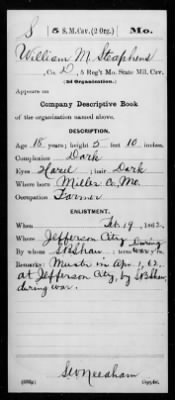 S | 5 S. M. Cav. (2 Org.) | Mo.
William M. Steaphens
, Co. D, 5 Reg't Mo. State Mil. Cav.
(2d Organization.)
Appears on
Company Descriptive Book
of the organization named above.
DESCRIPTION.
Age 18 years; height 5 feet 10 inches.
Complexion Dark
Eyes Hazel ; hair Dark
Where born Miller Co, Mo.
Occupation Farmer
ENLISTMENT.
When Feb. 19, 1862.
Where Jefferson City
By whom ; term during war yrs.
Remarks: Muster in Apr. 1, 62,
at Jefferson City, by
during war.
Copyist.